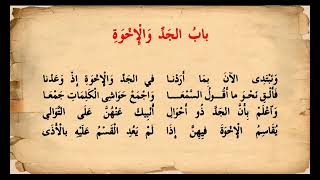 بابُ الْجَدِّ وَالْإِخْوَةِ
وَنَبْتَدِي الْآنَ بِمَا أَرَدْنَا فِي الْجَدِّ وَالْإِخْوَةِ إِذْ وَعَدْنَا
فَأَلْقِ نَحْوَ مَا أَقُولُ السَّمْعَا وَاجْمَعْ حَوَاشِي الْكَلِمَاتِ جَمْعَا
وَاعْلَمْ بِأَنَّ الْجَدَّ ذُو أَحْوَالِ أُنْبِيكَ عَنْهُنَّ عَلَى التَّوَالِي
يُقَاسِمُ الْإِخْوَةَ فِيهِنَّ إِذَا لَمْ يَعُدِ الْقَسْمُ عَلَيْهِ بِالْأَذَى